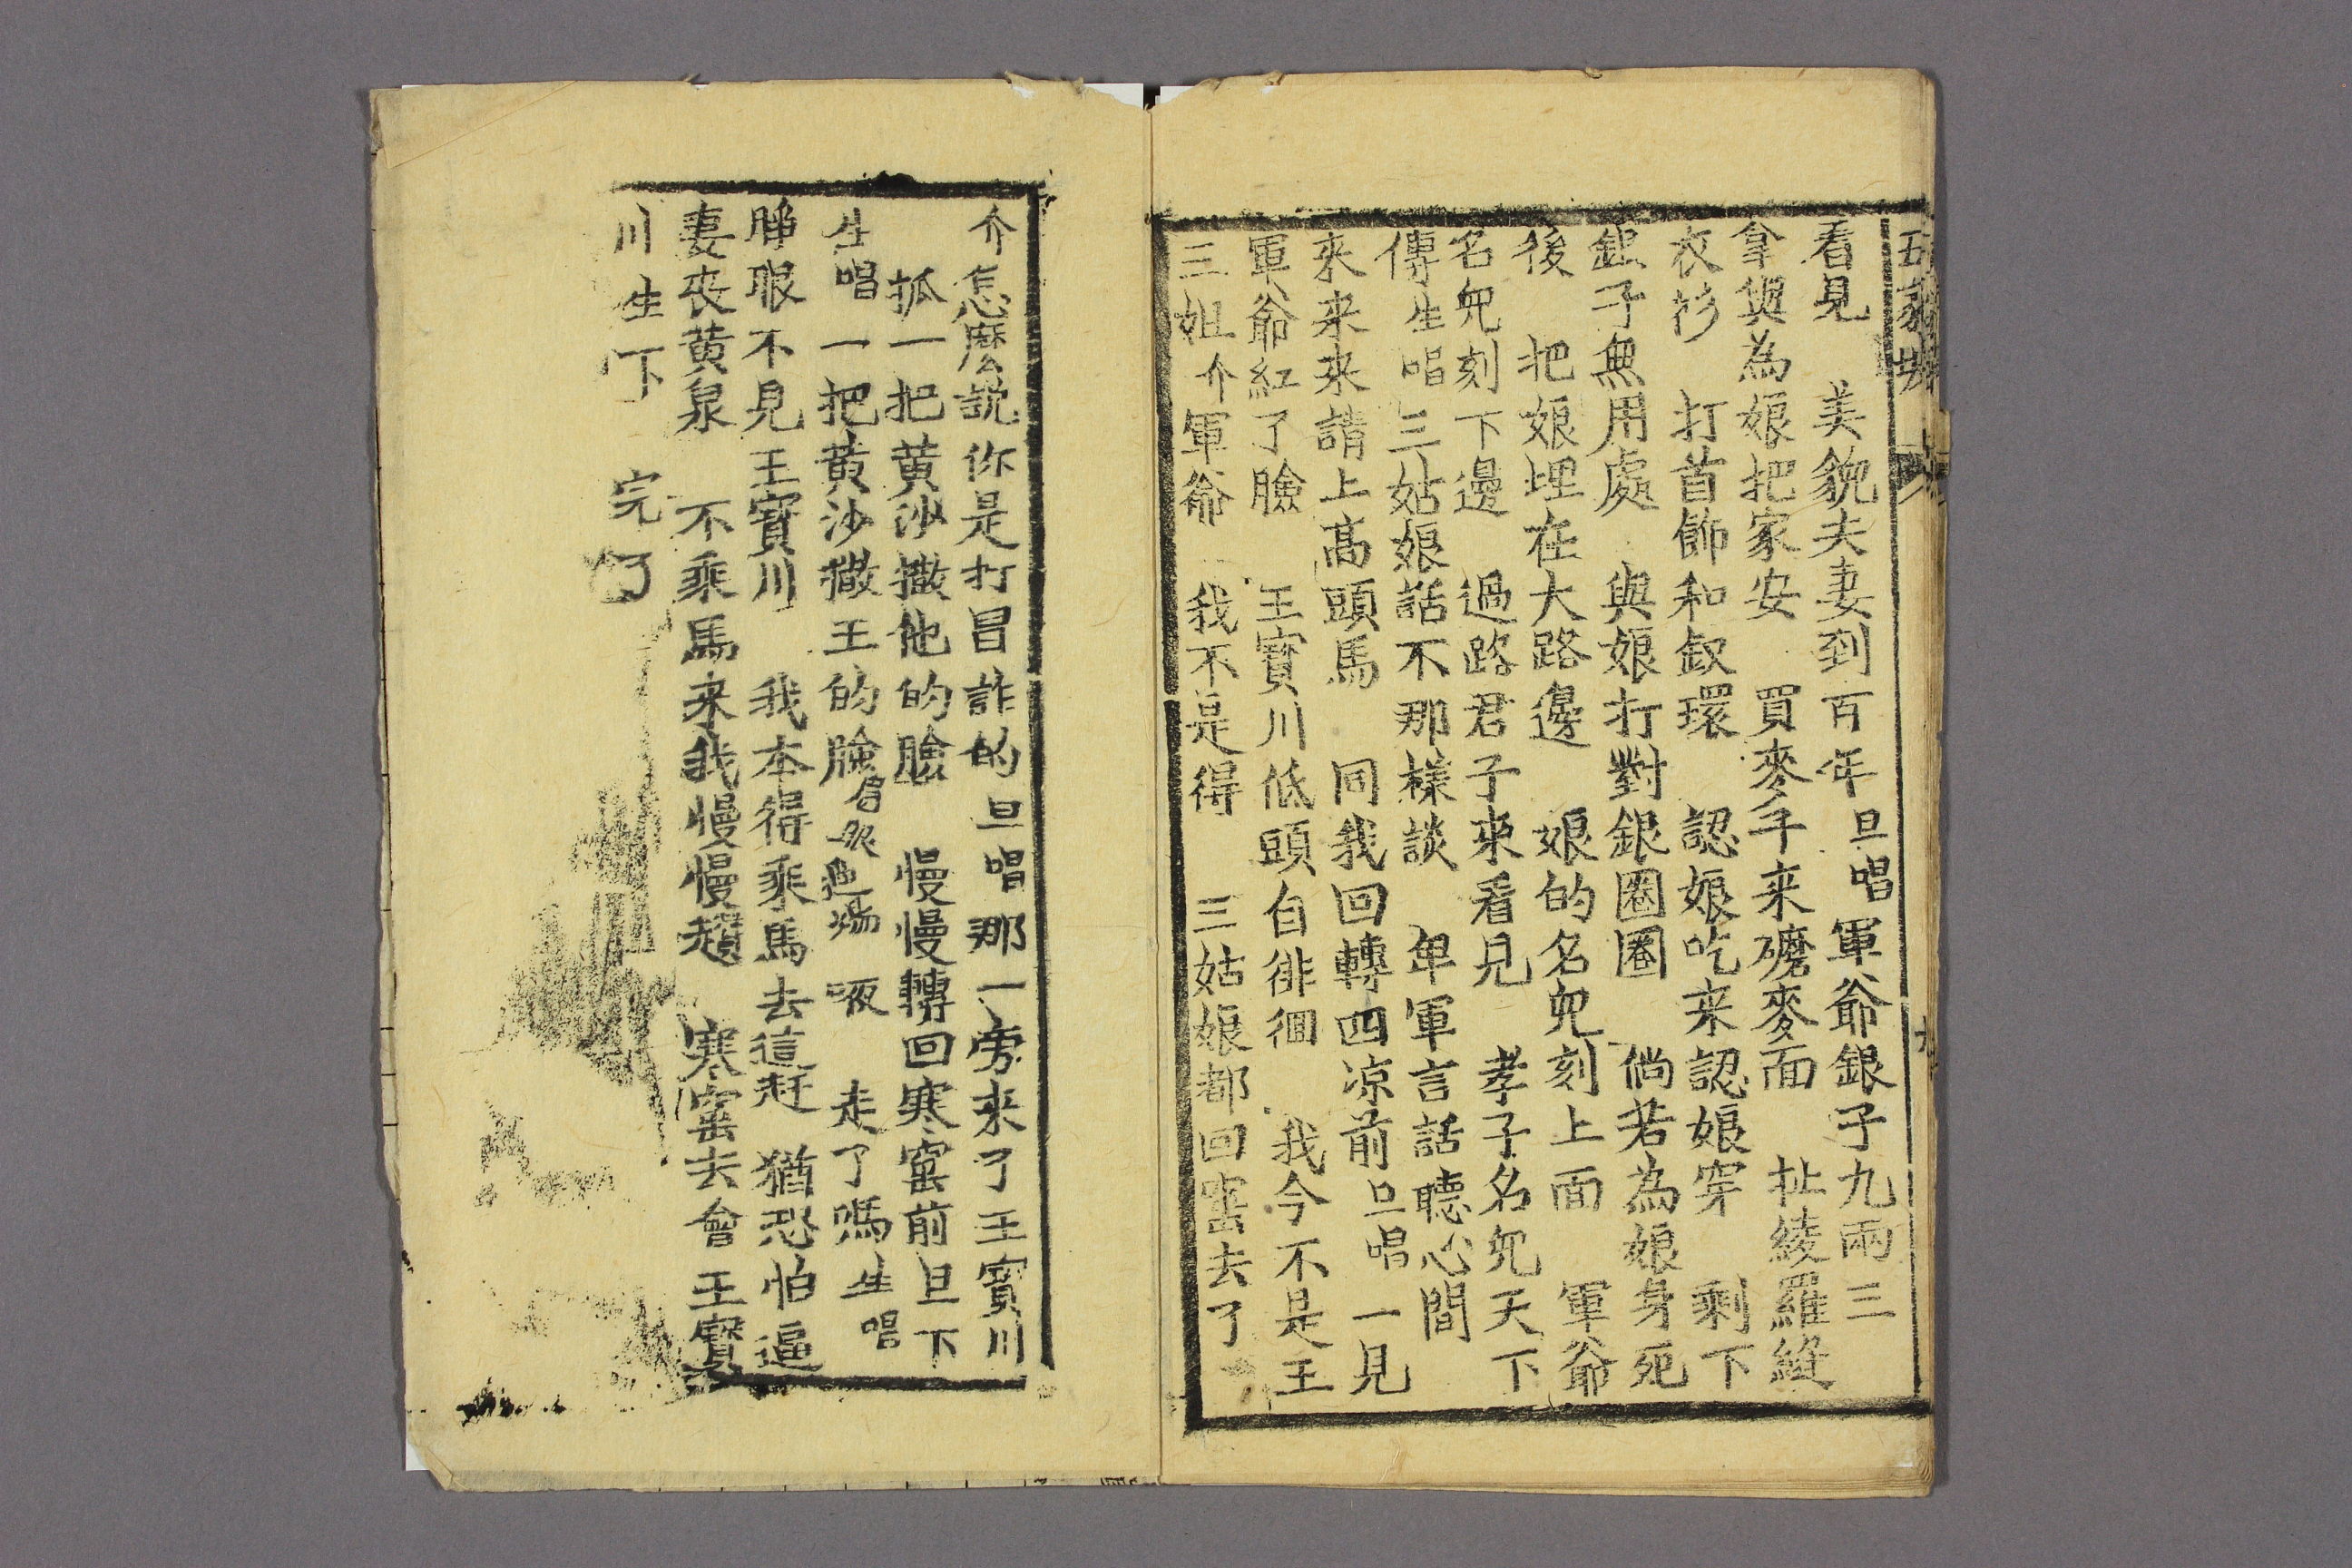 看見　美貌夫妻到百年旦唱軍爺銀子九兩三
拿與為娘把家安　買麥子来磨麥面　扯綾羅縫
衣衫　打首飾和釵環　認娘吃来認娘穿　剩下
銀子無用處　與娘打對銀圈圈　倘若為娘身死
後　把娘埋在大路邊　娘的名兒刻上面　軍爺
名兒刻下邊　過路君子來看見　孝子名兒天下
傳生唱三姑娘話不那樣談　卑軍言話聽心間
來来来請上高頭馬　同我回轉四凉前旦唱一見
軍爺紅了臉　王寳川低頭自徘徊　我今不是王
三姐介軍爺　我不是得　三姑娘都回窑去了
介怎麽説你是打冒詐的旦唱那一旁來了王寳川
抓一把黄沙撒他的臉　慢慢轉回寒窑前旦下
生唱一把黄沙撒王的臉眉眼　㖡　走了嗎生唱
睜眼不見王寳川　我本得乘馬去這赶　猶恐怕逼
妻丧黄泉　不乘馬来我慢慢趲　寒窑去會王寳
川生下　完了